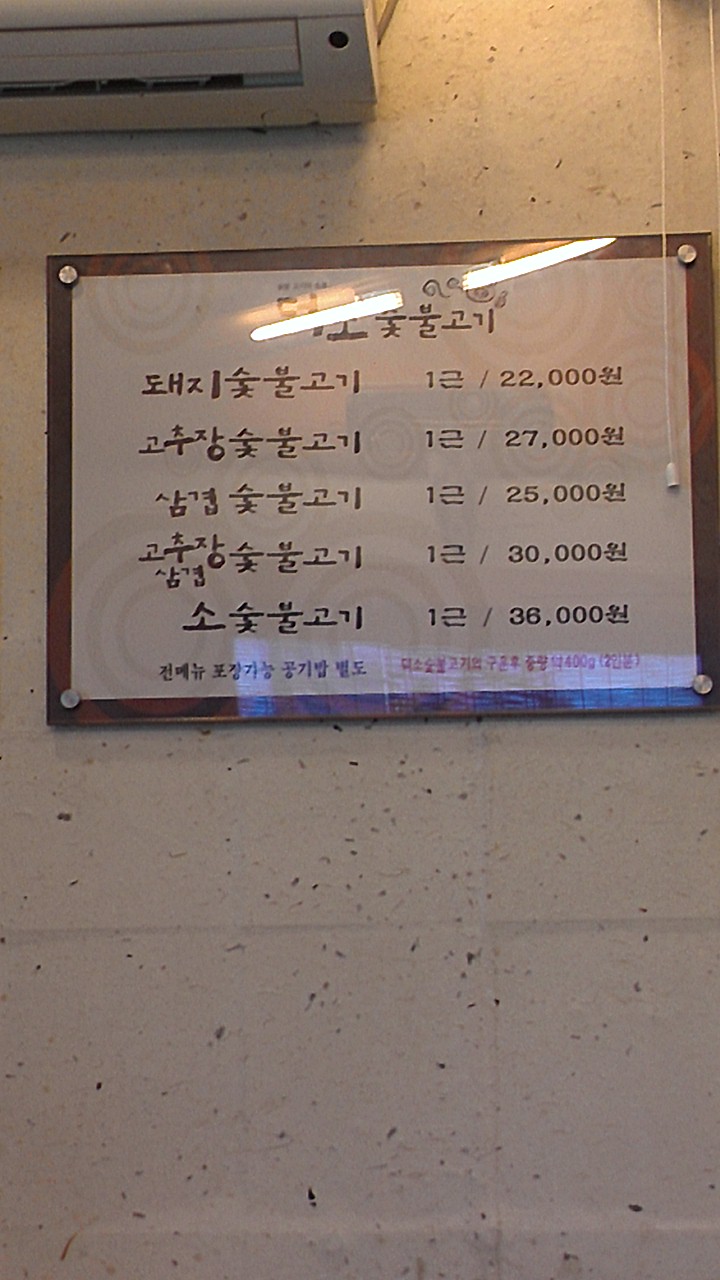 덕소숯불고기
돼지숯불고기 1근 / 22,000원
고추장숯불고기 1근 / 27,000원
삼겹숯불고기 1근 / 25,000원
고추장삼겹숯불고기 1근 / 30,000원
소숯불고기 1근 / 36,000원
전메뉴 포장가능 공기밥 별도 덕소숯불고기의 구운후 중량 약400g (2인분)